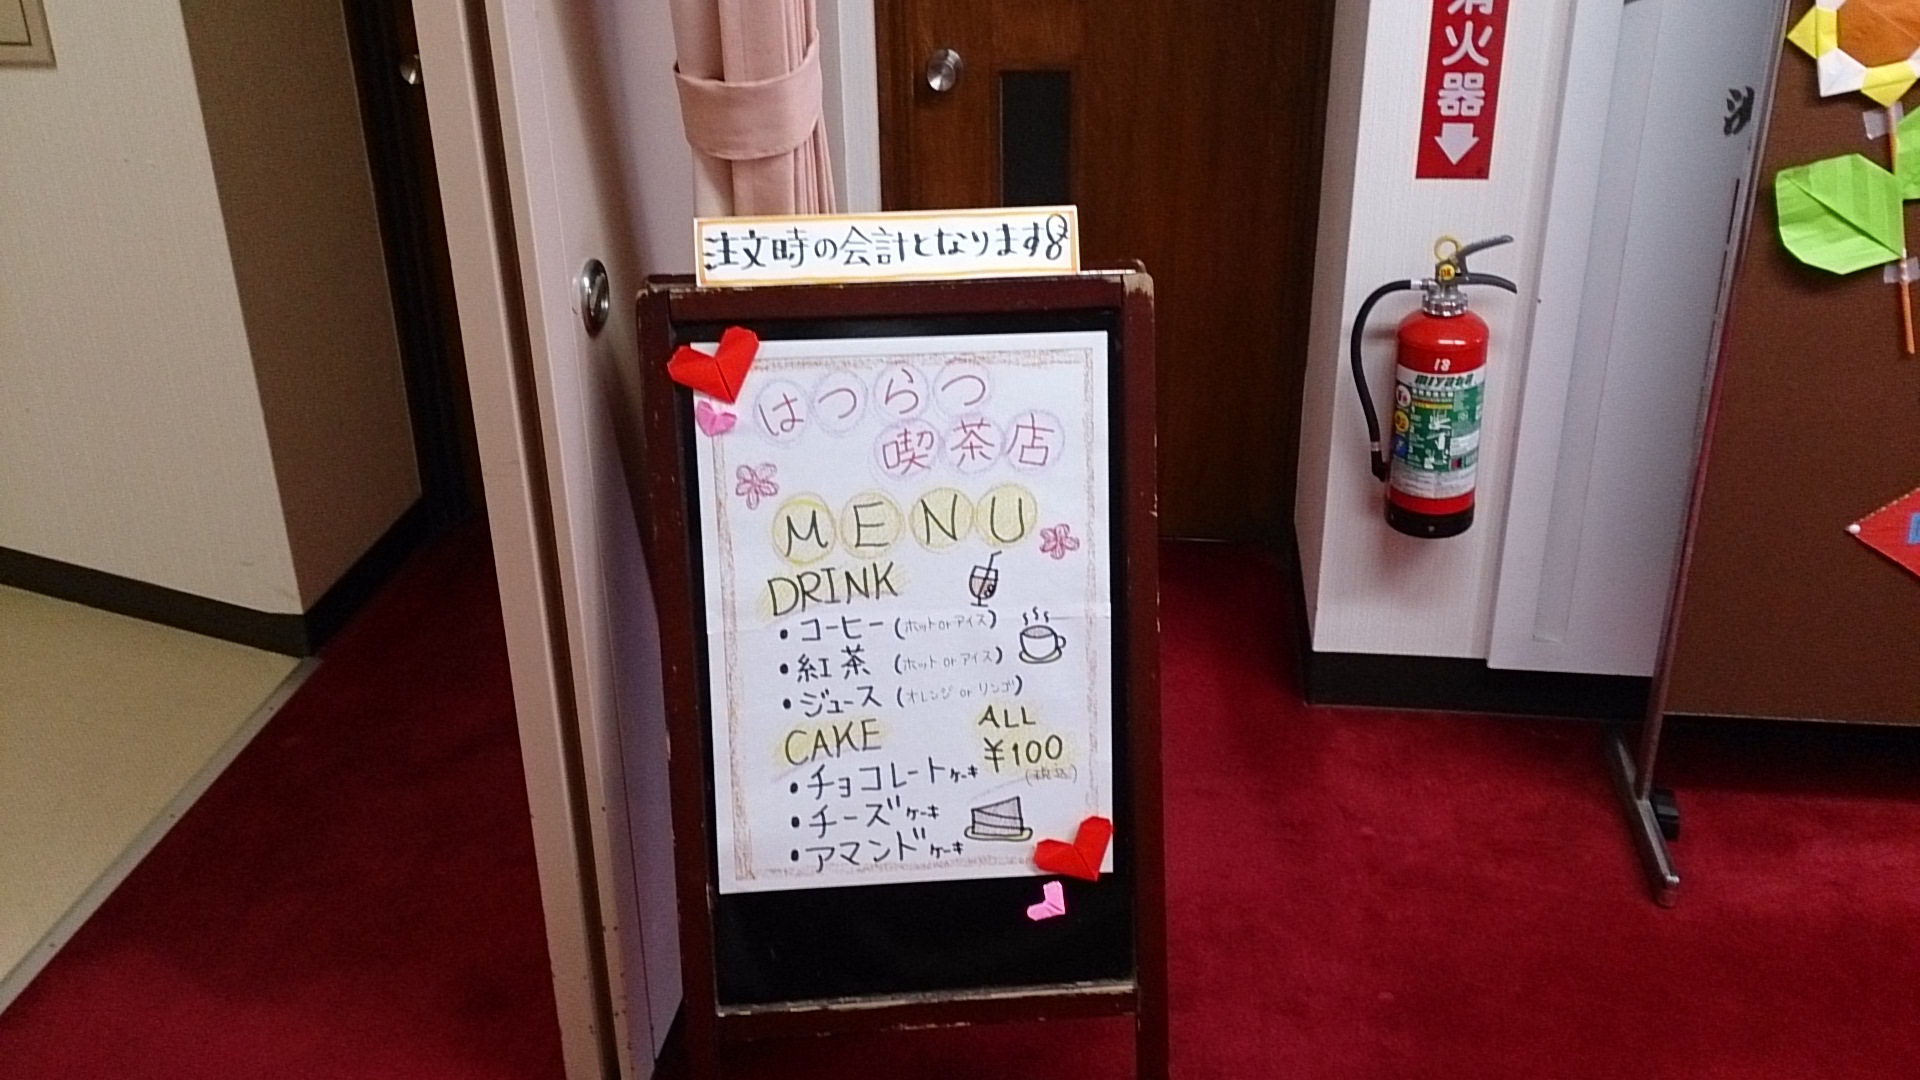 注文時の会計となります
はつらつ
喫茶店
MENU
DRINK
・コーヒー (ホット or アイス)
・紅茶 (ホット or アイス)
・ジュース (オレンジ or リンゴ)
CAKE
ALL
¥100
(税込)
・チョコレートケーキ
・チーズケーキ
・アマンドケーキ
消火器
13
miyata